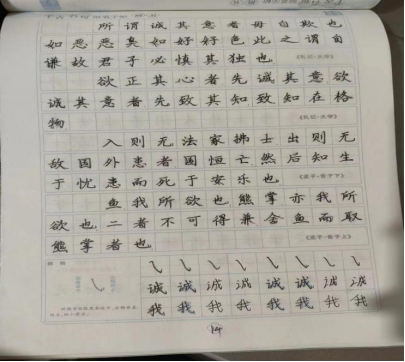 所谓诚其意者毋自欺也
如恶恶臭如好好色此之谓自
谦故君子必慎其独也
《礼记·大学》
欲正其心者先诚其意欲
诚其意者先致其知致知在格
物
《礼记·大学》
入则无法家拂士出则无
敌国外患者国恒亡然后知生
于忧患而死于安乐也
《孟子·告子下》
鱼我所欲也熊掌亦我所
欲也二者不可得兼舍鱼而取
熊掌者也
《孟子·告子上》
诚诚诚诚诚诚诚诚
我我我我我我我我
14